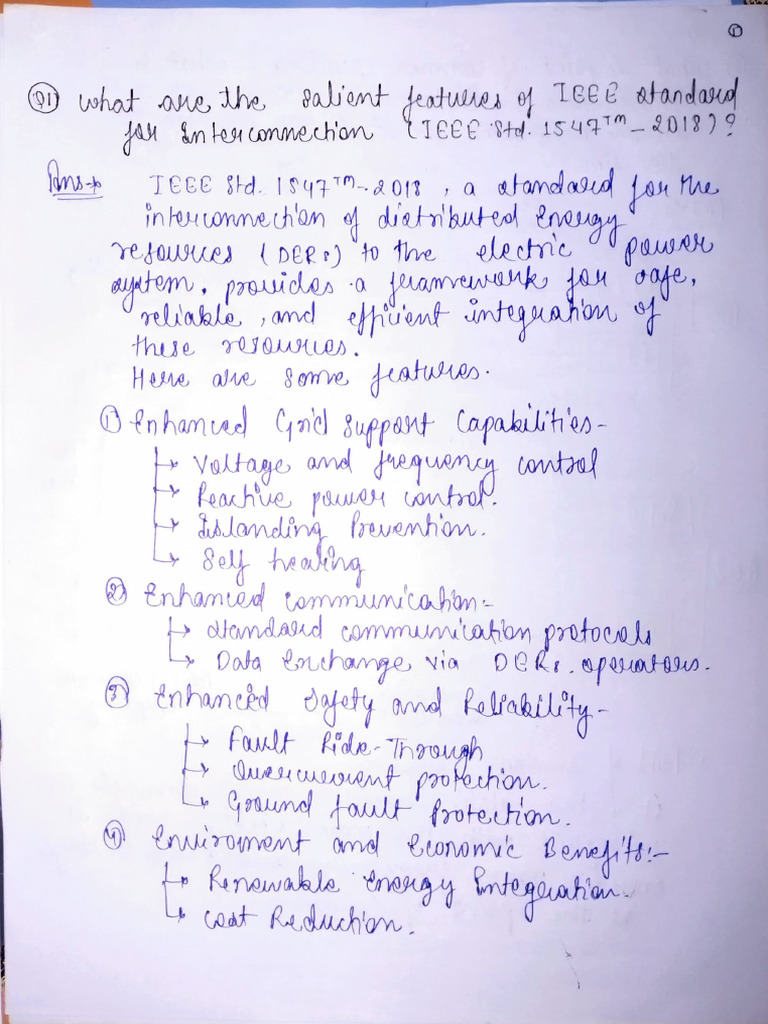 ①
Q1 What are the salient features of IEEE standard
for Interconnection (IEEE Std. 1547™-2018)?
Ans→ IEEE Std. 1547™-2018, a standard for the
interconnection of distributed Energy
resources (DERs) to the electric power
system, provides a framework for safe,
reliable, and efficient integration of
these resources.
Here are some features.
① Enhanced Grid Support Capabilities-
→ Voltage and frequency control
→ Reactive power control.
→ Islanding Prevention.
→ Self healing
② Enhanced communication:-
→ standard communication protocals
→ Data Exchange via DERs. operators.
③ Enhanced Safety and Reliability-
→ Fault Ride-Through
→ Overcurrent protection.
→ Ground fault Protection.
④ Enviroment and Economic Benefits:-
→ Renewable Energy Integration.
→ Cost Reduction.